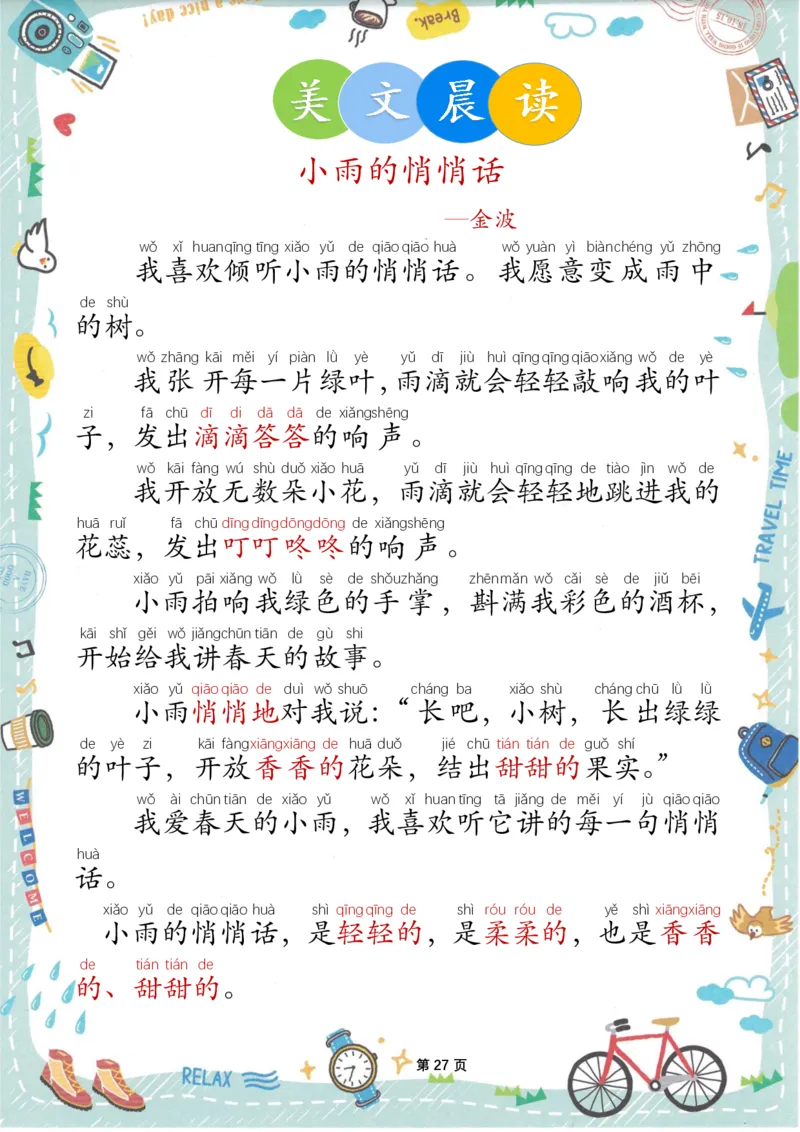 Have a nice day!
Break.
美文晨读
小雨的悄悄话
—金波
wǒ xǐ huanqīng tīng xiǎo yǔ de qiāo qiāo huà wǒ yuàn yì biànchéng yǔ zhōng
我喜欢倾听小雨的悄悄话。我愿意变成雨中
de shù
的树。
wǒ zhāng kāi měi yí piàn lǜ yè yǔ dī jiù huì qīng qīng qiāoxiǎng wǒ de yè
我张开每一片绿叶，雨滴就会轻轻敲响我的叶
zi fā chū dī di dā dā de xiǎngshēng
子，发出滴滴答答的响声。
wǒ kāi fàng wú shù duǒ xiǎo huā yǔ dī jiù huì qīng qīng de tiào jìn wǒ de
我开放无数朵小花，雨滴就会轻轻地跳进我的
huā ruǐ fā chū dīng dīng dōng dōng de xiǎngshēng
花蕊，发出叮叮咚咚的响声。
xiǎo yǔ pāi xiǎng wǒ lǜ sè de shǒuzhǎng zhēnmǎn wǒ cǎi sè de jiǔ bēi
小雨拍响我绿色的手掌，斟满我彩色的酒杯，
kāi shǐ gěi wǒ jiǎngchūn tiān de gù shi
开始给我讲春天的故事。
xiǎo yǔ qiāo qiāo de duì wǒ shuō cháng ba xiǎo shù cháng chū lǜ lǜ
小雨悄悄地对我说：“长吧，小树，长出绿绿
de yè zi kāi fàng xiāngxiāng de huā duǒ jié chū tián tián de guǒ shí
的叶子，开放香香的花朵，结出甜甜的果实。”
wǒ ài chūn tiān de xiǎo yǔ wǒ xǐ huan tīng tā jiǎng de měi yí jù qiāo qiāo
我爱春天的小雨，我喜欢听它讲的每一句悄悄
huà
话。
xiǎo yǔ de qiāo qiāo huà shì qīng qīng de shì róu róu de yě shì xiāngxiāng
小雨的悄悄话，是轻轻的，是柔柔的，也是香香
de tián tián de
的、甜甜的。
TRAVEL TIME
WELCOME
RELAX
第 27 页